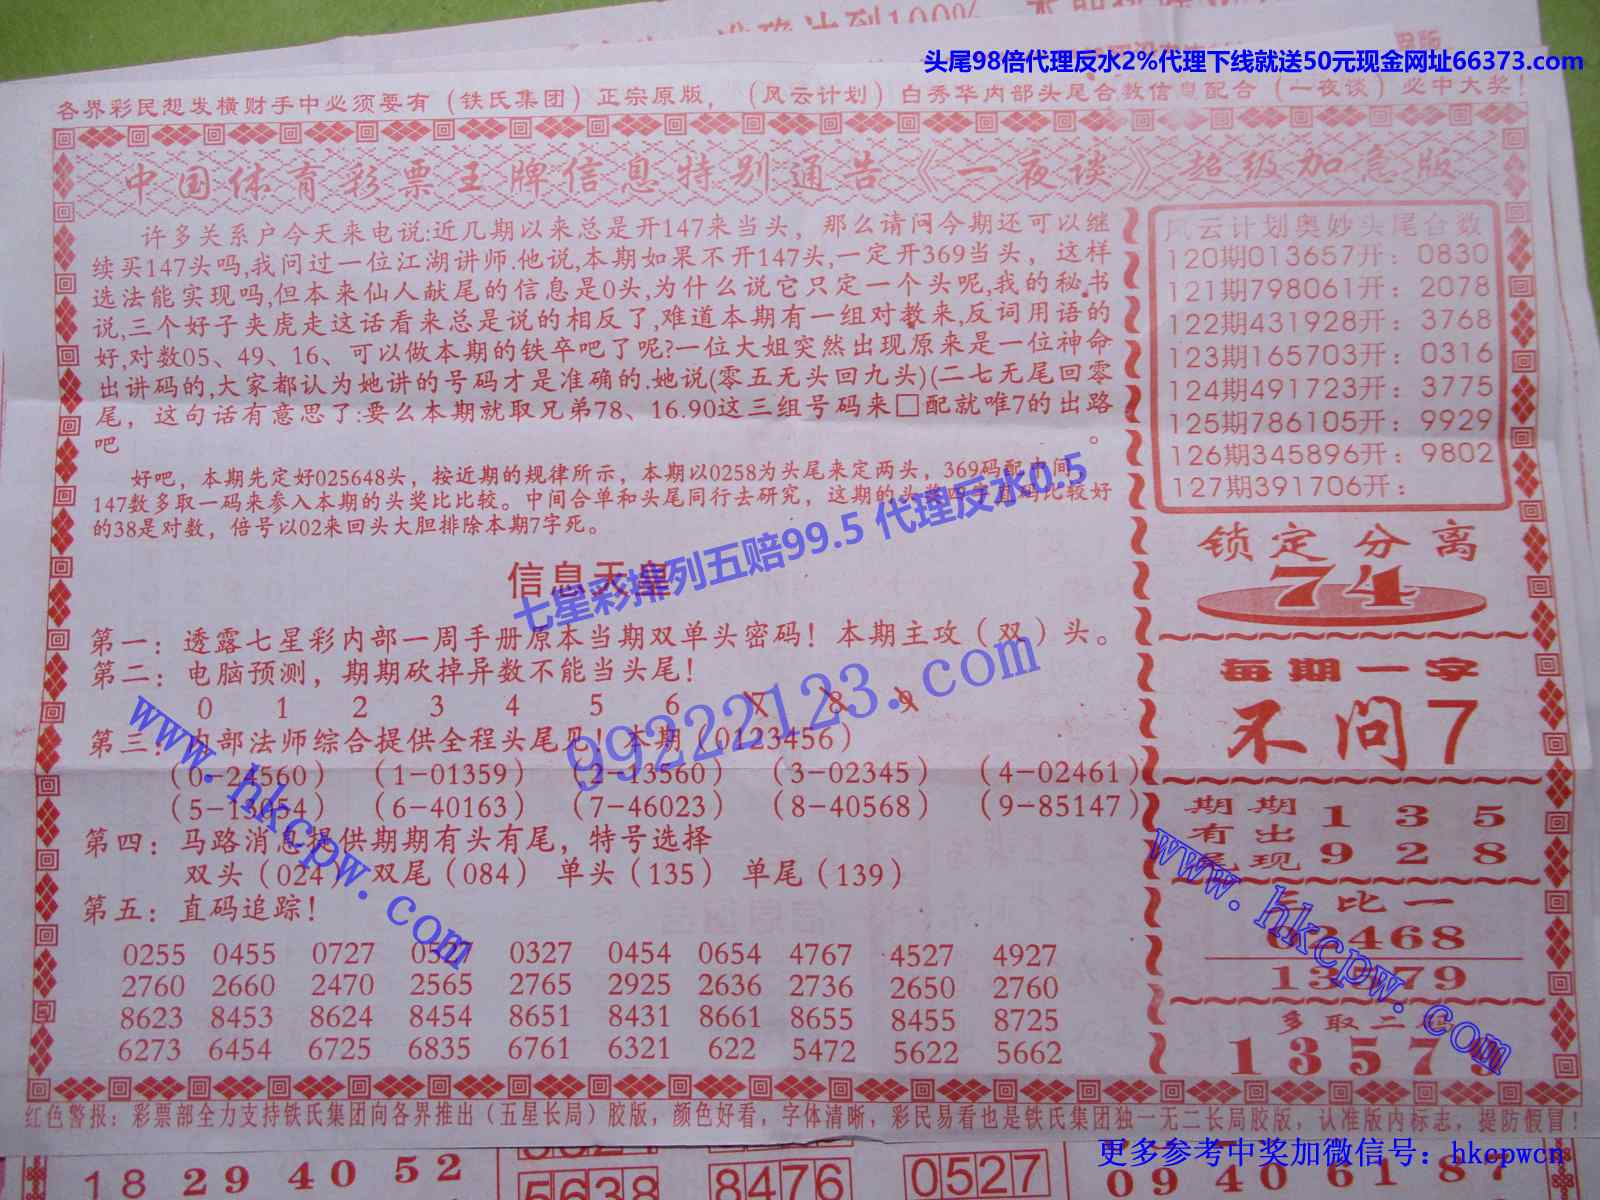 准确达到100%
头尾98倍代理反水2%代理下线就送50元现金网址66373.com
各界彩民想发横财手中必须要有（铁氏集团）正宗原版，（风云计划）白秀华内部头尾合数信息配合（一夜谈）必中大奖！
中国体育彩票王牌信息特别通告《一夜谈》超级加急版
许多关系户今天来电说:近几期以来总是开147来当头，那么请问今期还可以继
续买147头吗,我问过一位江湖讲师.他说,本期如果不开147头,一定开369当头，这样
选法能实现吗,但本来仙人献尾的信息是0头,为什么说它只定一个头呢,我的秘书
说,三个好子夹虎走这话看来总是说的相反了,难道本期有一组对教来,反词用语的
好,对数05、49、16、可以做本期的铁卒吧了呢?一位大姐突然出现原来是一位神命
出讲码的,大家都认为她讲的号码才是准确的.她说(零五无头回九头)(二七无尾回零
尾，这句话有意思了:要么本期就取兄弟78、16.90这三组号码来□配就唯7的出路
吧。
好吧，本期先定好025648头，按近期的规律所示，本期以0258为头尾来定两头，369码配中间，
147数多取一码来参入本期的头奖比比较。中间合单和头尾同行去研究，这期的头奖四字直码比较好
的38是对数，倍号以02来回头大胆排除本期7字死。
信息天皇
七星彩排列五赔99.5 代理反水0.5
第一：透露七星彩内部一周手册原本当期双单头密码！本期主攻（双）头。
第二：电脑预测，期期砍掉异数不能当头尾！
0 1 2 3 4 5 6 7 8 9
第三：内部法师综合提供全程头尾见！本期（0123456）
（0-24560）（1-01359）（2-13560）（3-02345）（4-02461）
（5-13654）（6-40163）（7-46023）（8-40568）（9-85147）
第四：马路消息提供期期有头有尾，特号选择
双头（024）双尾（084）单头（135）单尾（139）
第五：直码追踪！
0255 0455 0727 0527 0327 0454 0654 4767 4527 4927
2760 2660 2470 2565 2765 2925 2636 2736 2650 2760
8623 8453 8624 8454 8651 8431 8661 8655 8455 8725
6273 6454 6725 6835 6761 6321 622 5472 5622 5662
风云计划奥妙头尾合数
120期013657开：0830
121期798061开：2078
122期431928开：3768
123期165703开：0316
124期491723开：3775
125期786105开：9929
126期345896开：9802
127期391706开：
锁定分离
74
每期一字
不问7
期期 1 3 5
有出
尾现 9 2 8
五比一
02468
13579
多取二码
13579
99222123.com
www.hkcpw.com
www.hkcpw.com
红色警报：彩票部全力支持铁氏集团向各界推出（五星长局）胶版，颜色好看，字体清晰，彩民易看也是铁氏集团独一无二长局胶版，认准版内标志，提防假冒！
更多参考中奖加微信号：hkcpwcn
18 29 40 52
5638
8476
0527
09 40 61 87